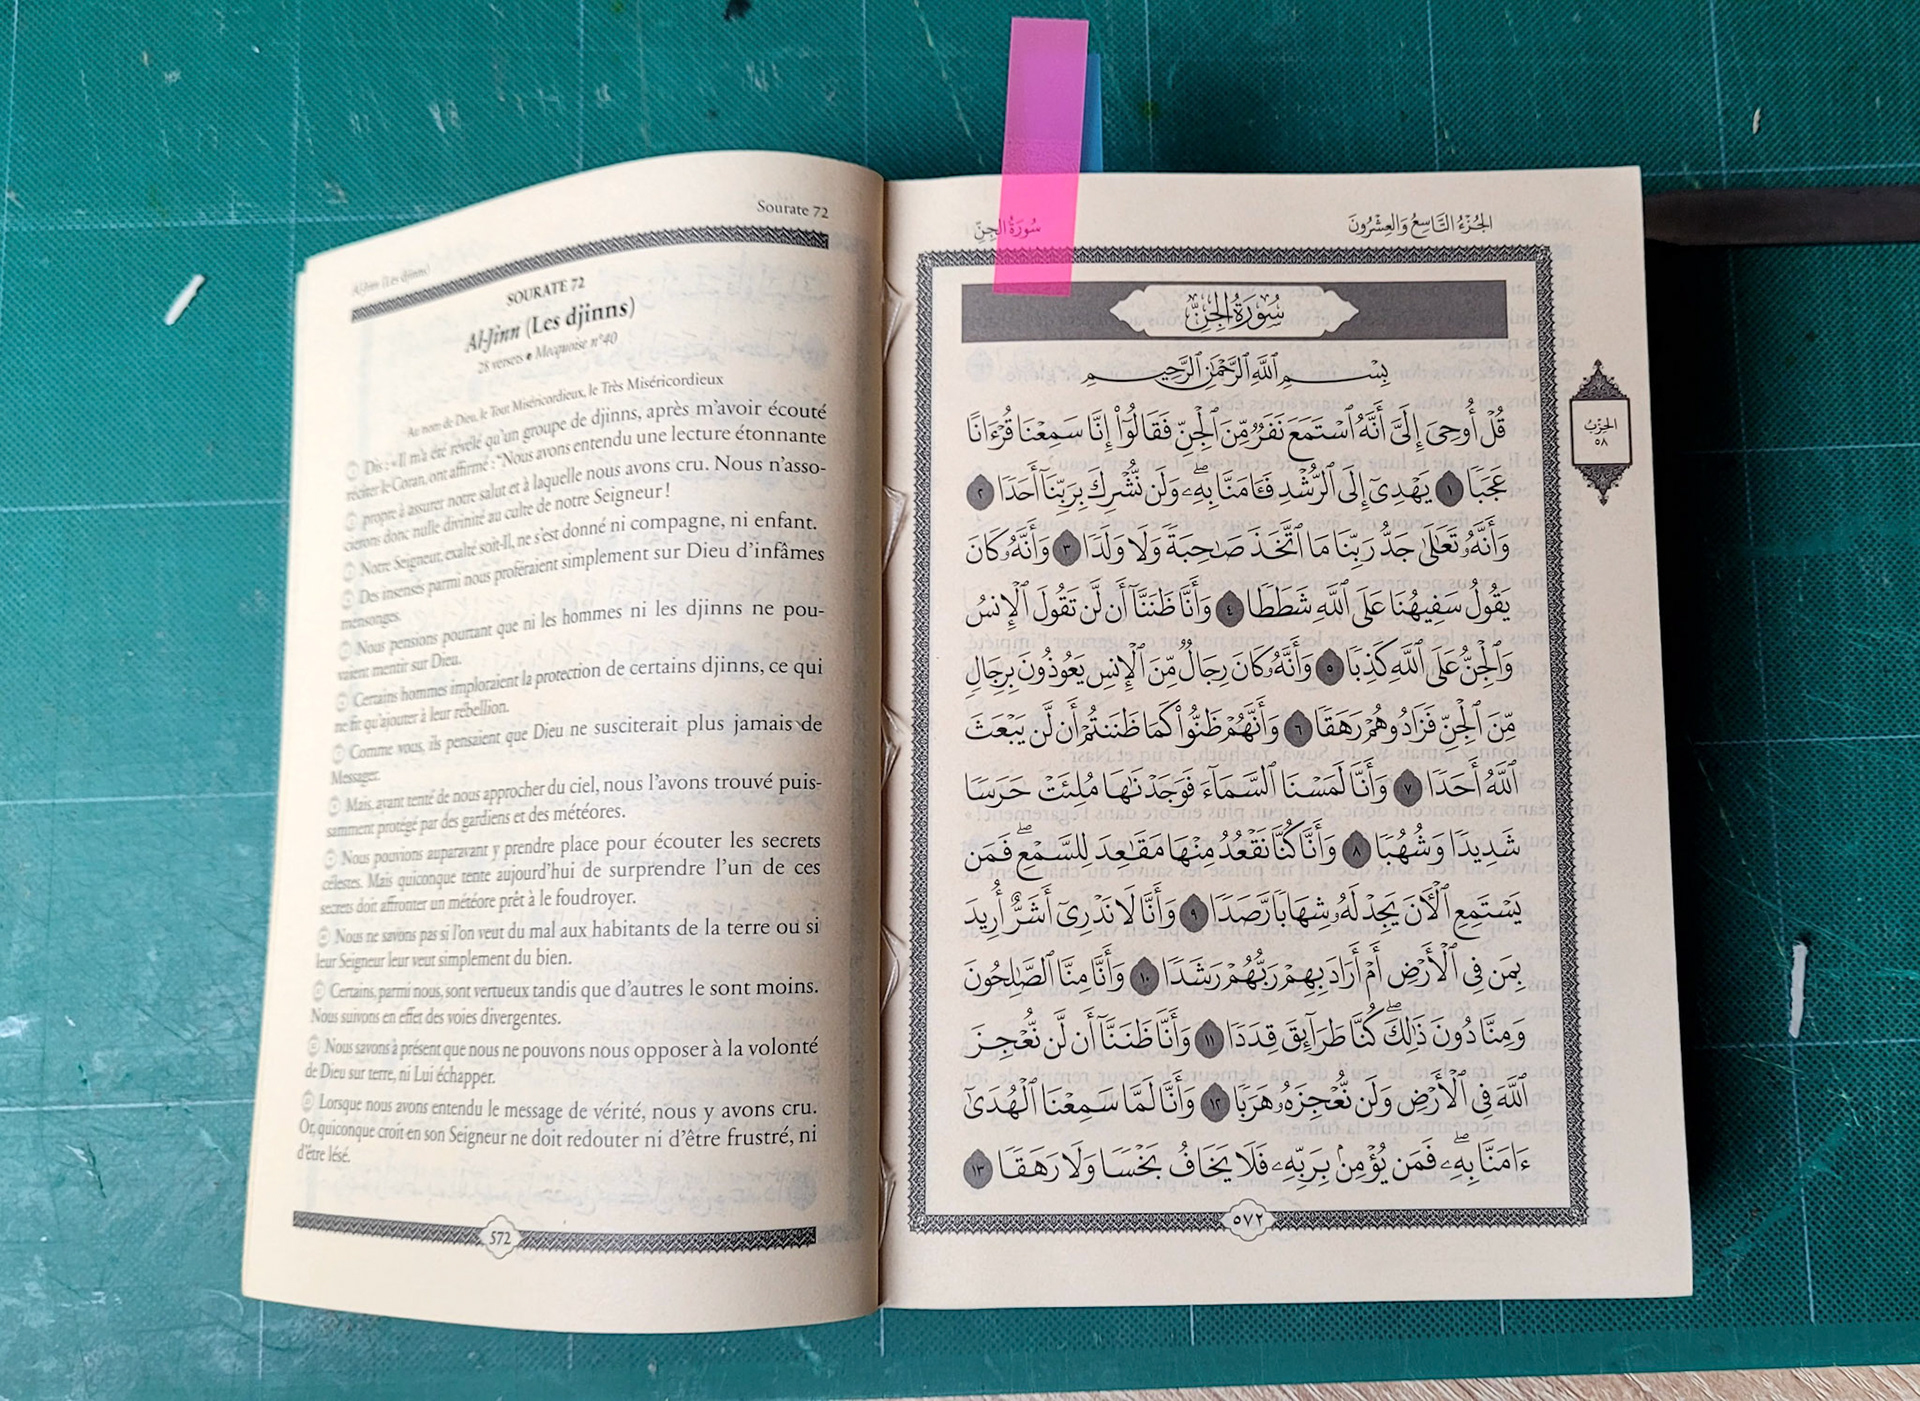 Sourate 72
Al-Jinn (Les djinns)
SOURATE 72
Al-Jinn (Les djinns)
28 versets • Mecquoise n°40
Au nom de Dieu, le Tout Miséricordieux, le Très Miséricordieux
① Dis : « Il m'a été révélé qu'un groupe de djinns, après m'avoir écouté
réciter le Coran, ont affirmé : "Nous avons entendu une lecture étonnante
② propre à assurer notre salut et à laquelle nous avons cru. Nous n'asso-
cierons donc nulle divinité au culte de notre Seigneur !
③ Notre Seigneur, exalté soit-Il, ne s'est donné ni compagne, ni enfant.
④ Des insensés parmi nous proféraient simplement sur Dieu d'infâmes
mensonges.
⑤ Nous pensions pourtant que ni les hommes ni les djinns ne pou-
vaient mentir sur Dieu.
⑥ Certains hommes imploraient la protection de certains djinns, ce qui
ne fit qu'ajouter à leur rébellion.
⑦ Comme vous, ils pensaient que Dieu ne susciterait plus jamais de
Messager.
⑧ Mais, ayant tenté de nous approcher du ciel, nous l'avons trouvé puis-
samment protégé par des gardiens et des météores.
⑨ Nous pouvions auparavant y prendre place pour écouter les secrets
célestes. Mais quiconque tente aujourd'hui de surprendre l'un de ces
secrets doit affronter un météore prêt à le foudroyer.
⑩ Nous ne savons pas si l'on veut du mal aux habitants de la terre ou si
leur Seigneur leur veut simplement du bien.
⑪ Certains, parmi nous, sont vertueux tandis que d'autres le sont moins.
Nous suivons en effet des voies divergentes.
⑫ Nous savons à présent que nous ne pouvons nous opposer à la volonté
de Dieu sur terre, ni Lui échapper.
⑬ Lorsque nous avons entendu le message de vérité, nous y avons cru.
Or, quiconque croit en son Seigneur ne doit redouter ni d'être frustré, ni
d'être lésé.
572
الجُزْءُ التَّاسِعُ وَالعِشْرُونَ
سُورَةُ الجِنِّ
سُورَةُ الجِنِّ
بِسْمِ ٱللَّهِ ٱلرَّحْمَٰنِ ٱلرَّحِيمِ
قُلْ أُوحِىَ إِلَىَّ أَنَّهُ ٱسْتَمَعَ نَفَرٌ مِّنَ ٱلْجِنِّ فَقَالُوٓا۟ إِنَّا سَمِعْنَا قُرْءَانًا
عَجَبًا ١ يَهْدِىٓ إِلَى ٱلرُّشْدِ فَـَٔامَنَّا بِهِۦ ۖ وَلَن نُّشْرِكَ بِرَبِّنَآ أَحَدًا ٢
وَأَنَّهُۥ تَعَٰلَىٰ جَدُّ رَبِّنَا مَا ٱتَّخَذَ صَٰحِبَةً وَلَا وَلَدًا ٣ وَأَنَّهُۥ كَانَ
يَقُولُ سَفِيهُنَا عَلَى ٱللَّهِ شَطَطًا ٤ وَأَنَّا ظَنَنَّآ أَن لَّن تَقُولَ ٱلْإِنسُ
وَٱلْجِنُّ عَلَى ٱللَّهِ كَذِبًا ٥ وَأَنَّهُۥ كَانَ رِجَالٌ مِّنَ ٱلْإِنسِ يَعُوذُونَ بِرِجَالٍ
مِّنَ ٱلْجِنِّ فَزَادُوهُمْ رَهَقًا ٦ وَأَنَّهُمْ ظَنُّوا۟ كَمَا ظَنَنتُمْ أَن لَّن يَبْعَثَ
ٱللَّهُ أَحَدًا ٧ وَأَنَّا لَمَسْنَا ٱلسَّمَآءَ فَوَجَدْنَٰهَا مُلِئَتْ حَرَسًا
شَدِيدًا وَشُهُبًا ٨ وَأَنَّا كُنَّا نَقْعُدُ مِنْهَا مَقَٰعِدَ لِلسَّمْعِ ۖ فَمَن
يَسْتَمِعِ ٱلْـَٔانَ يَجِدْ لَهُۥ شِهَابًا رَّصَدًا ٩ وَأَنَّا لَا نَدْرِىٓ أَشَرٌّ أُرِيدَ
بِمَن فِى ٱلْأَرْضِ أَمْ أَرَادَ بِهِمْ رَبُّهُمْ رَشَدًا ١٠ وَأَنَّا مِنَّا ٱلصَّٰلِحُونَ
وَمِنَّا دُونَ ذَٰلِكَ ۖ كُنَّا طَرَآئِقَ قِدَدًا ١١ وَأَنَّا ظَنَنَّآ أَن لَّن نُّعْجِزَ
ٱللَّهَ فِى ٱلْأَرْضِ وَلَن نُّعْجِزَهُۥ هَرَبًا ١٢ وَأَنَّا لَمَّا سَمِعْنَا ٱلْهُدَىٰٓ
ءَامَنَّا بِهِۦ ۖ فَمَن يُؤْمِنۢ بِرَبِّهِۦ فَلَا يَخَافُ بَخْسًا وَلَا رَهَقًا ١٣
الحِزْبُ
٥٨
٥٧٢